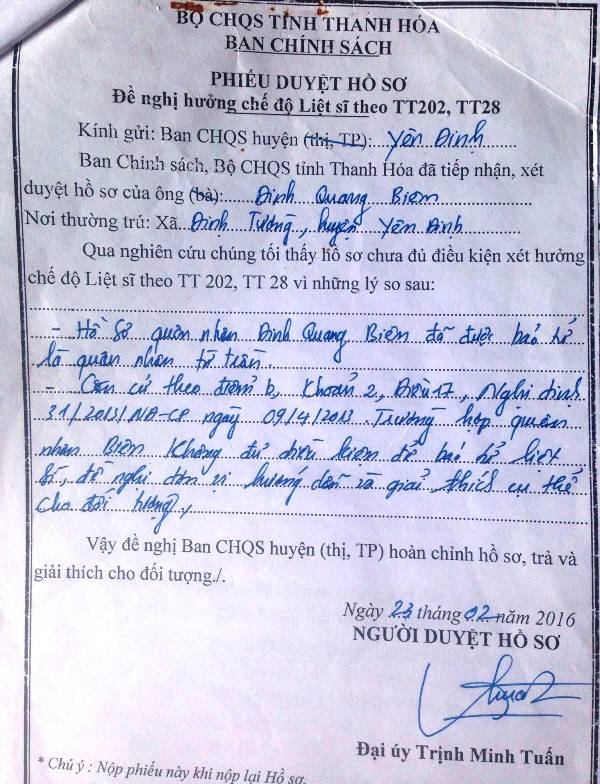 BỘ CHQS TỈNH THANH HÓA
BAN CHÍNH SÁCH
PHIẾU DUYỆT HỒ SƠ
Đề nghị hưởng chế độ Liệt sĩ theo TT202, TT28
Kính gửi: Ban CHQS huyện (thị, TP): Yên Định
Ban Chính sách, Bộ CHQS tỉnh Thanh Hóa đã tiếp nhận, xét
duyệt hồ sơ của ông (bà): Đinh Quang Biêm
Nơi thường trú: Xã Định Tường, huyện Yên Định
Qua nghiên cứu chúng tôi thấy hồ sơ chưa đủ điều kiện xét hưởng
chế độ Liệt sĩ theo TT 202, TT 28 vì những lý so sau:
- Hồ sơ quân nhân Đinh Quang Biên đã được báo tử
là quân nhân từ trần.
- Căn cứ theo điểm b, Khoản 2, Điều 17, Nghị định
31/2013/NĐ-CP ngày 09/4/2013 Trường hợp quân
nhân Biên không đủ điều kiện để báo tử liệt
sĩ, đề nghị đơn vị hướng dẫn và giải thích cụ thể
cho đối tượng,
Vậy đề nghị Ban CHQS huyện (thị, TP) hoàn chỉnh hồ sơ, trả và
giải thích cho đối tượng./.
Ngày 23 tháng 02 năm 2016
NGƯỜI DUYỆT HỒ SƠ
Đại úy Trịnh Minh Tuấn
* Chú ý : Nộp phiếu này khi nộp lại Hồ sơ.